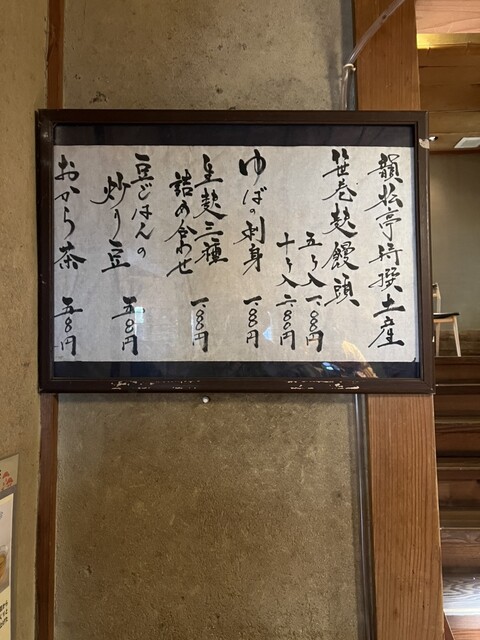 韻松亭特撰土産
笹巻麩饅頭
五ヶ入 一、〇〇〇円
十ヶ入 二、〇〇〇円
ゆばの刺身 一、〇〇〇円
生麩三種
詰め合わせ 一、〇〇〇円
豆ごはんの
炒り豆 五〇〇円
おから茶 五〇〇円